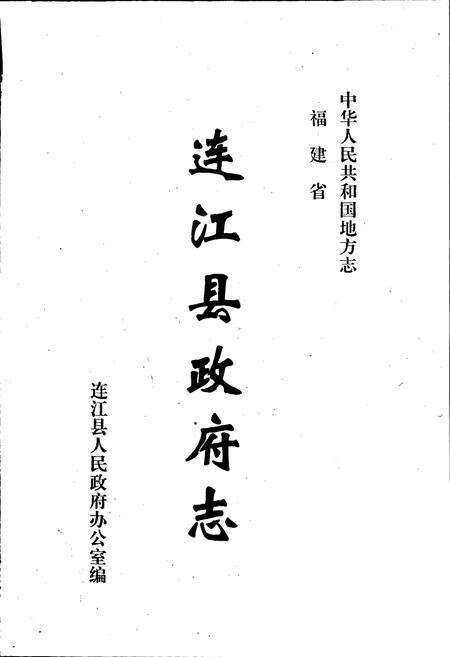 中华人民共和国地方志
福建省
连江县政府志
连江县人民政府办公室编